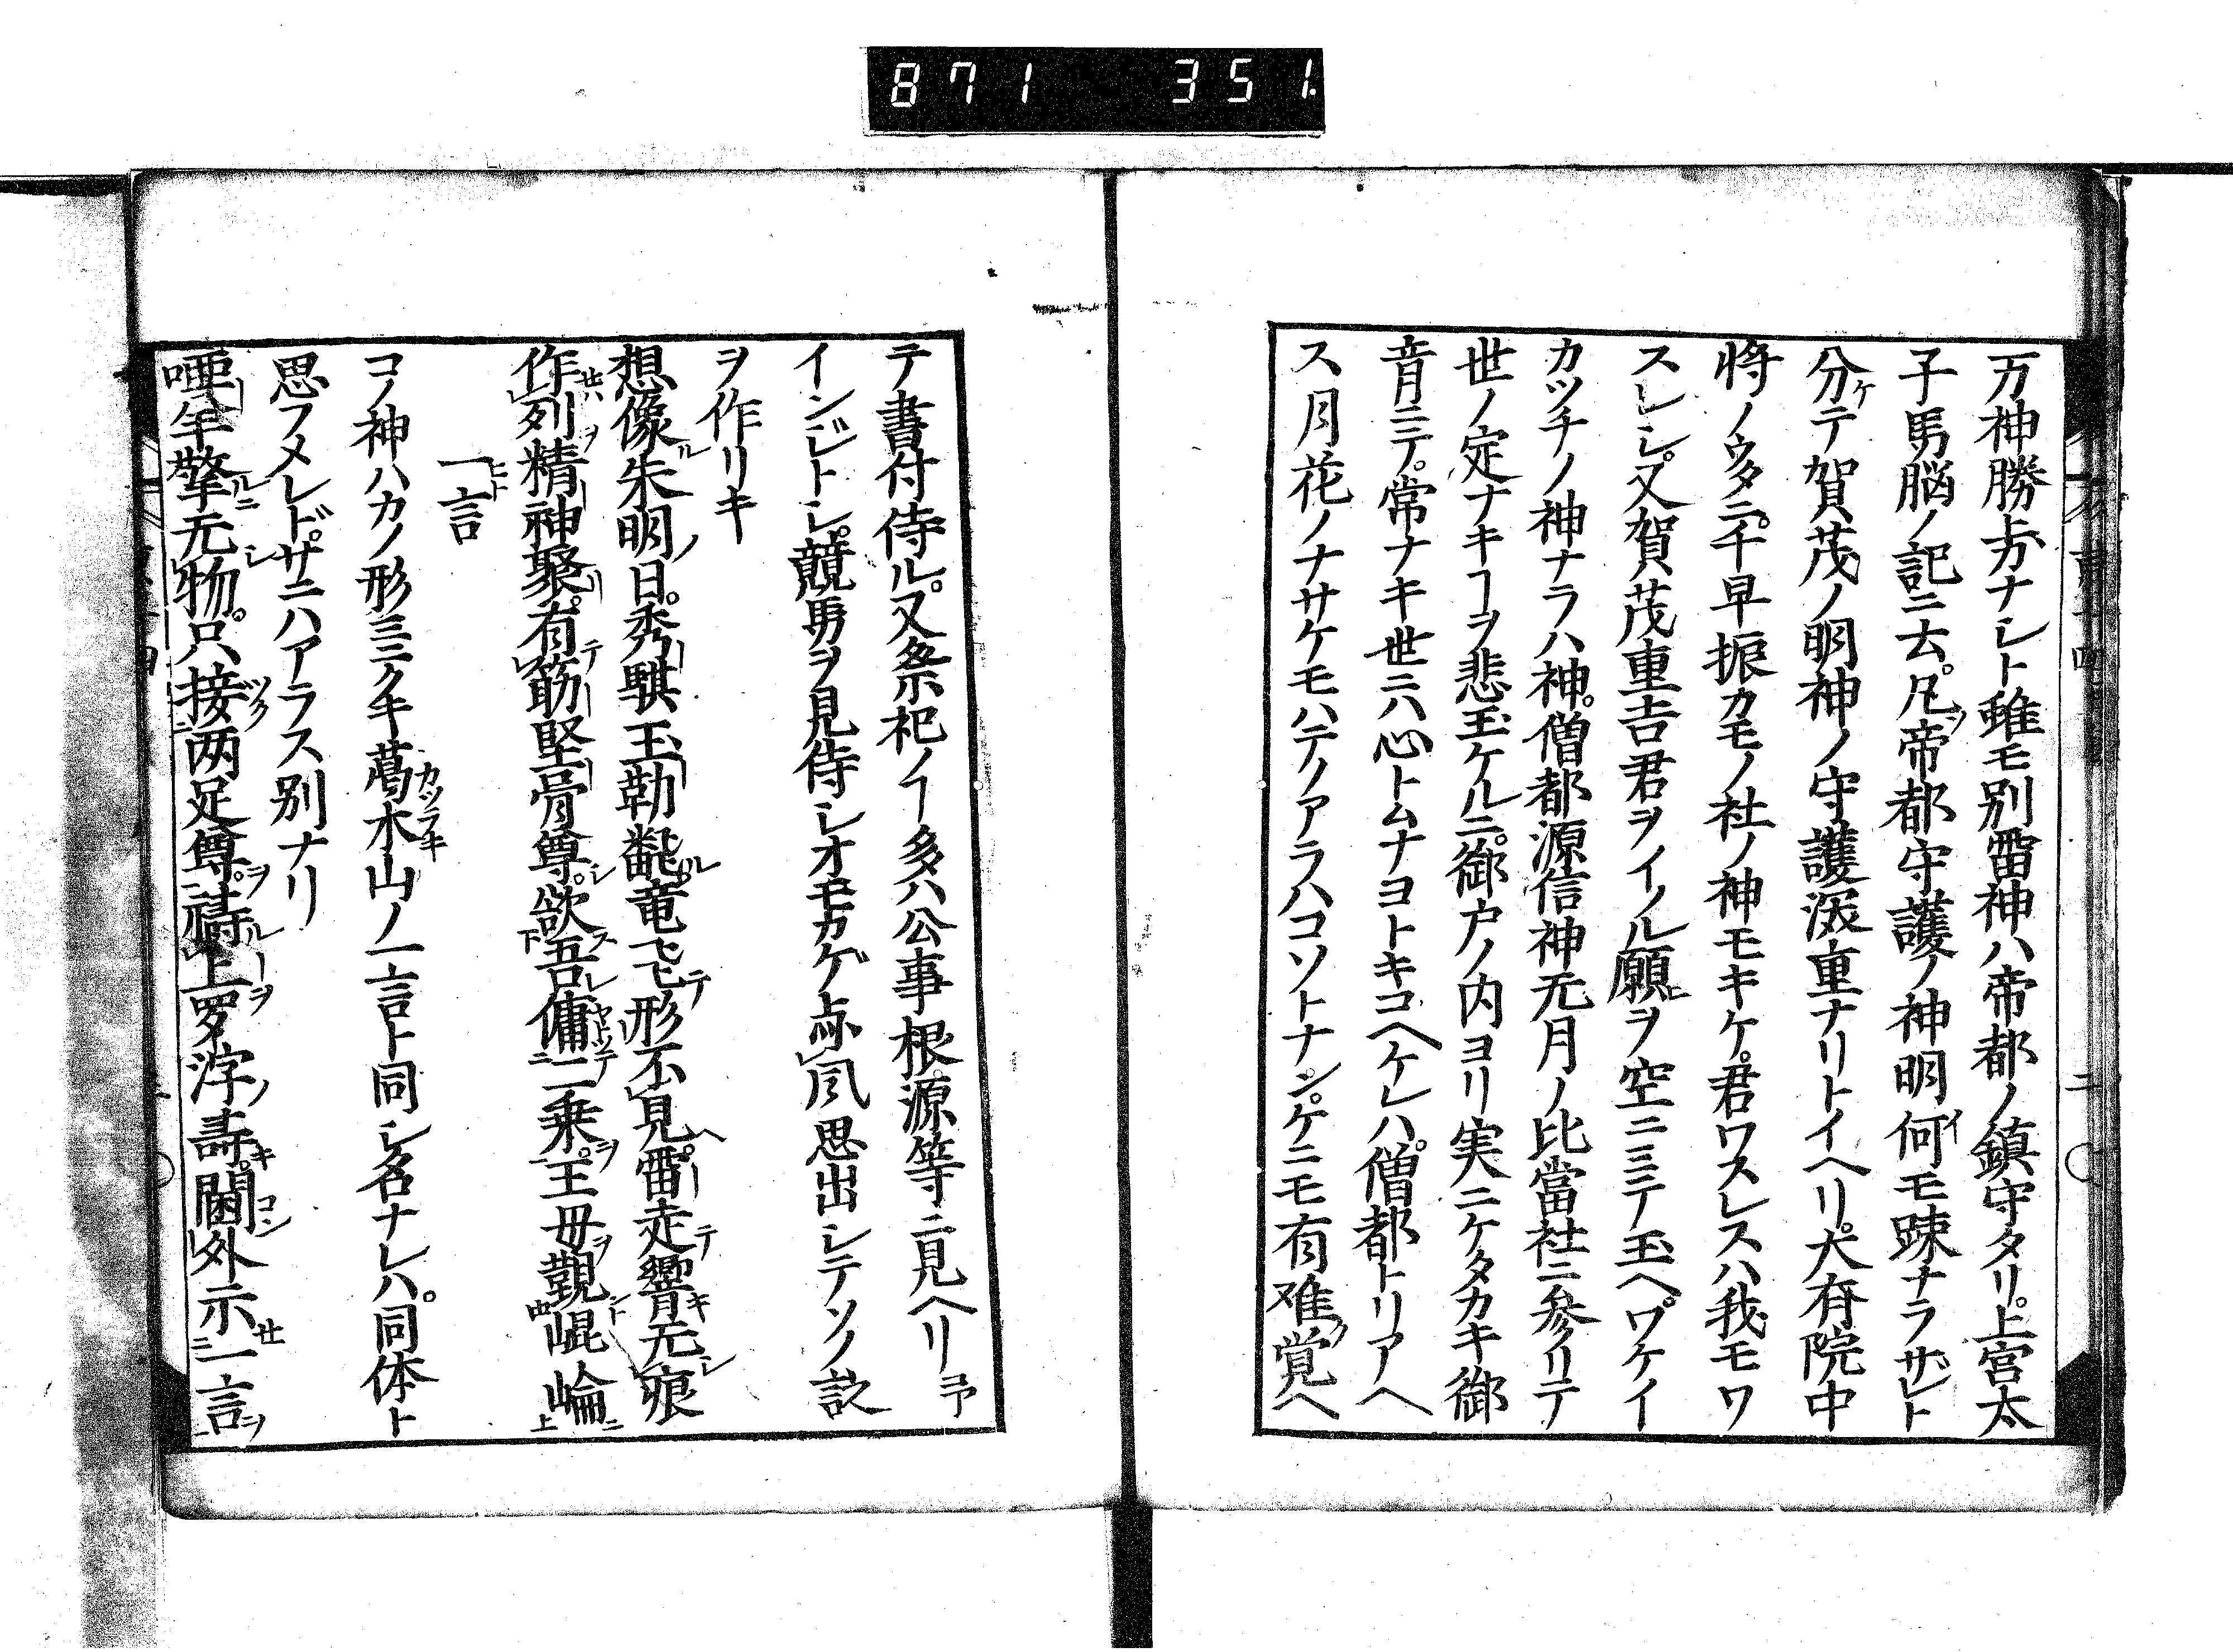 871 351.
万神勝劣ナシト雖モ別雷神ハ帝都ノ鎮守タリ。上宮太
子馬脳ノ記ニ云。凡帝都守護ノ神明何モ踈ナラザレト
分テ賀茂ノ明神ノ守護
重ナリトイヘリ。
院中
将ノウタニ。千早振カモノ社ノ神モキケ。君ワスレスハ我モワ
スレシ。又賀茂重吉君ヲイノル願ヲ空ニミテ玉ヘワケイ
カツチノ神ナラハ神。僧都源信神无月ノ比當社ニ参リテ
世ノ定ナキヿヲ悲玉ケルニ。御戸ノ内ヨリ実ニケタカキ御
音ニテ。常ナキ世ニハ心トムナヨトキコヘケレハ。僧都トリアヘ
ス月花ノナサケモハテノアラハコソトナン。ケニモ有难覚ヘ
テ書付侍ル。又祭祀ノヿ多ハ公事根源等ニ見ヘリ予
インジトシ。競馬ヲ見侍シオモカゲ
思出シテソノ詩
ヲ作リキ
想像朱明ノ日。秀騏玉勒
竜飞形不見雷走響无痕
作列精神聚。有筋堅骨尊。欲吾傭二乗。王母觀崐崘
一言
コノ神ハカノ形ミニクキ葛木山ノ一言ト同シ名ナレハ。同体ト
思フメレド。サニハアラス別ナリ
唖羊擎无物。只接两足尊。祷上
寿。閫外示一言